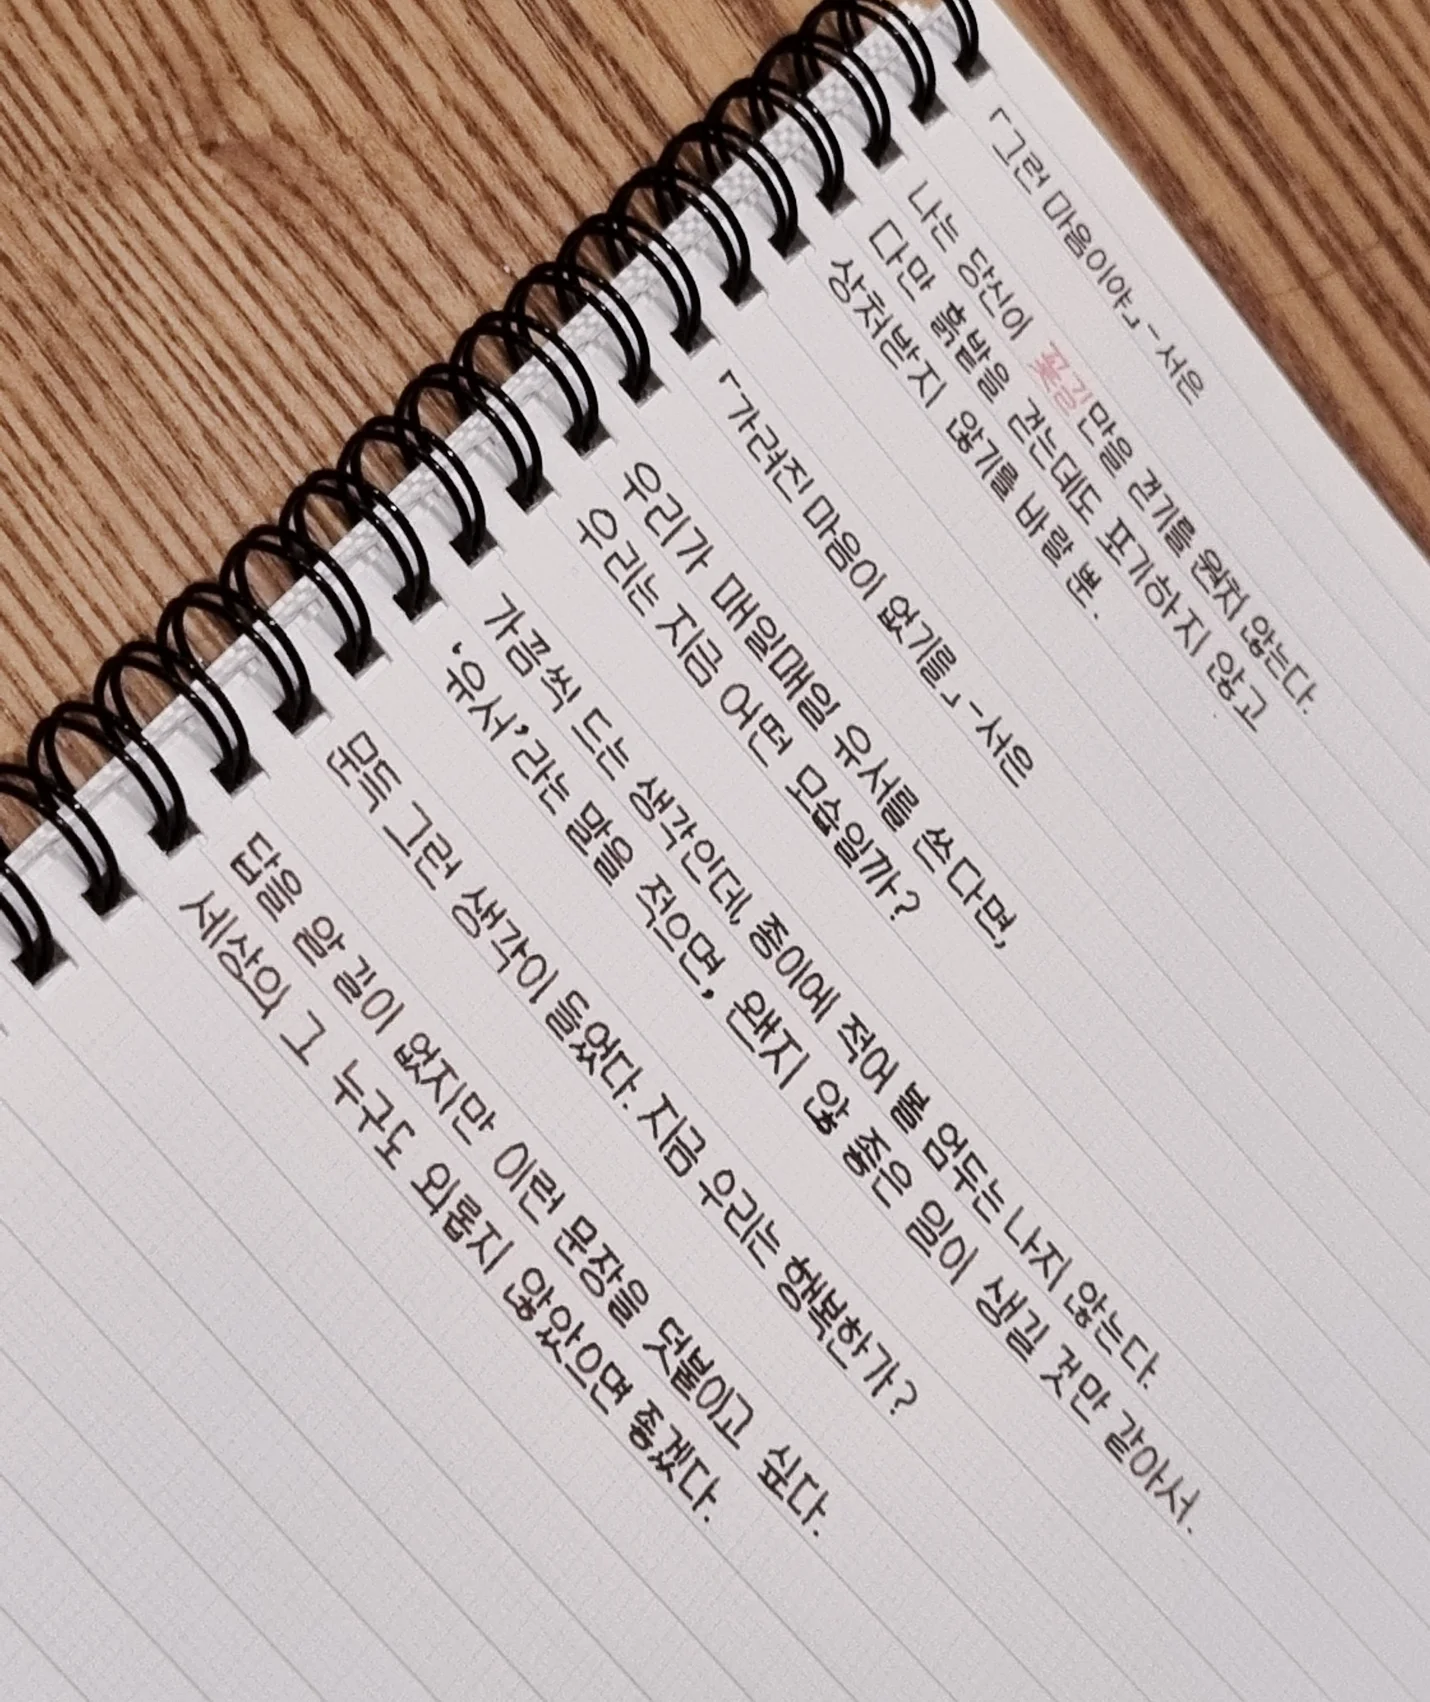 「그런 마음이야」 - 서은
나는 당신이 꽃길만을 걷기를 원치 않는다.
다만 흙밭을 걷는데도 포기하지 않고
상처받지 않기를 바랄 뿐.
「가려진 마음이 없기를」 - 서은
우리가 매일매일 유서를 쓴다면,
우리는 지금 어떤 모습일까?
가끔씩 드는 생각인데, 종이에 적어 볼 엄두는 나지 않는다.
'유서'라는 말을 적으면, 왠지 않 좋은 일이 생길 것만 같아서.
문득 그런 생각이 들었다. 지금 우리는 행복한가?
답을 알 길이 없지만 이런 문장을 덧붙이고 싶다.
세상의 그 누구도 외롭지 않았으면 좋겠다.